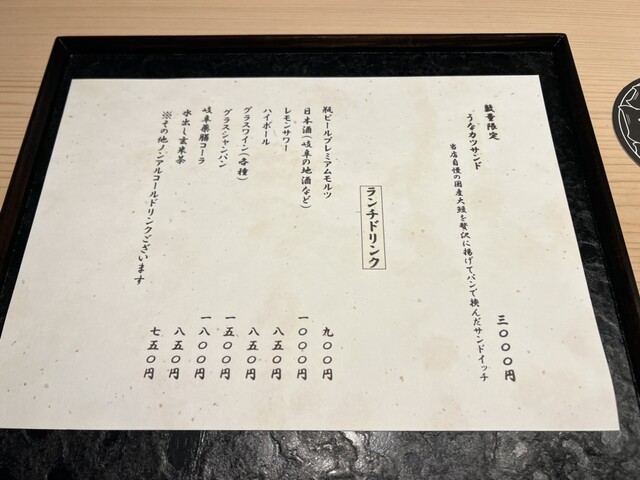 数量限定
うなカツサンド 三〇〇〇円
当店自慢の国産大鰻を贅沢に揚げてパンで挟んだサンドイッチ
ランチドリンク
瓶ビールプレミアムモルツ 九〇〇円
日本酒(岐阜の地酒など) 一〇〇〇円
レモンサワー 八五〇円
ハイボール 八五〇円
グラスワイン(各種) 一五〇〇円
グラスシャンパン 一八〇〇円
岐阜薬膳コーラ 八五〇円
水出し玄米茶 七五〇円
※その他ノンアルコールドリンクございます